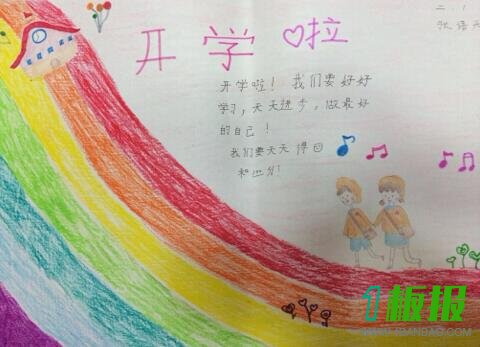 开学啦
二.1
开学啦！我们要好好
学习，天天进步，做最好
的自己！
我们要天天得回
和四分！
1板报
WWW.1BANBAO.COM